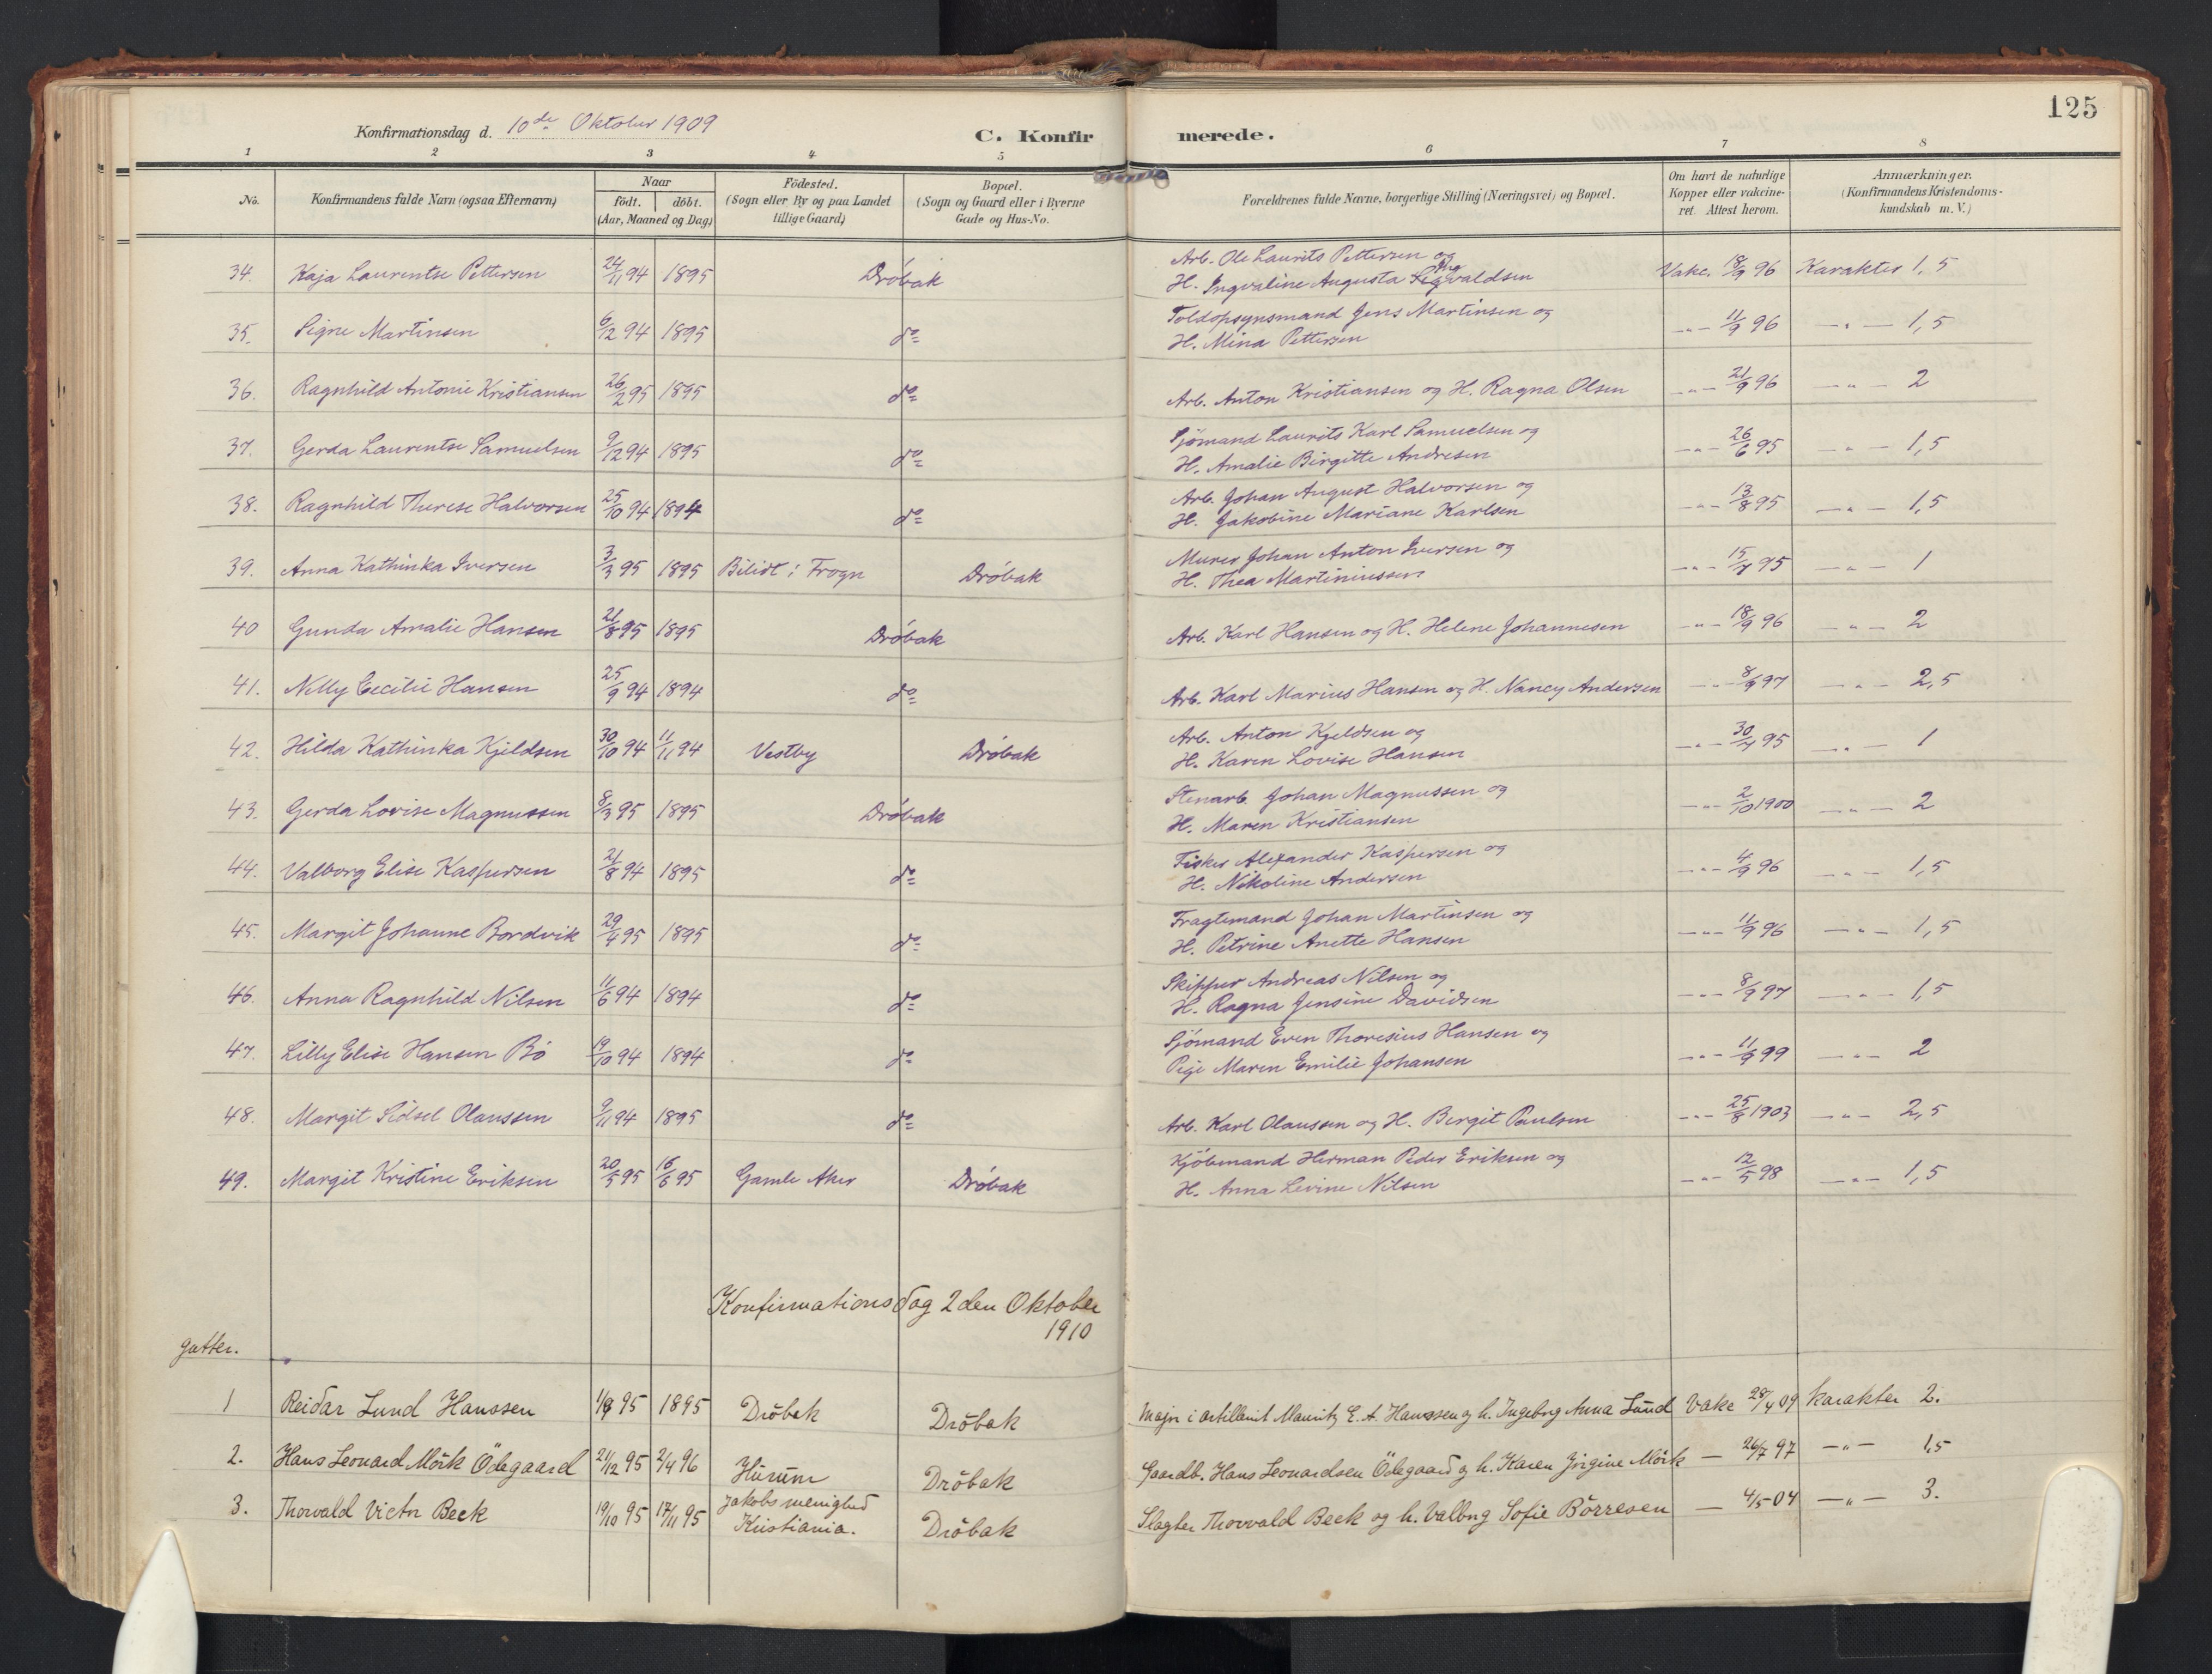 125
Konfirmationsdag d. 10de Oktober 1909
C. Konfirmerede.
1 2 3 4 5 6 7 8
No.
Konfirmandens fulde Navn (ogsaa Efternavn)
Naar
födt. döbt.
(Aar, Maaned og Dag)
Födested.
(Sogn eller By og paa Landet
tillige Gaard)
Bopæl.
(Sogn og Gaard eller i Byerne
Gade og Hus-No.
Forældrenes fulde Navne, borgerlige Stilling (Næringsvei) og Bopæl.
Om havt de naturlige
Kopper eller vakcine-
ret. Attest herom.
Anmærkninger.
(Konfirmandens Kristendoms-
kundskab m. V.)
34. Kaja Laurentse Pettersen 24/11 94 1895 Dröbak Arb. Ole Laurits Pettersen og
H. Ingvaline Augusta Ingvaldsen Vakc. 18/9 96 Karakter 1,5
35. Signe Martinsen 6/12 94 1895 do Toldopsynsmand Jens Martinsen og
H. Mina Pettersen -"- 11/9 96 -"- 1,5
36. Ragnhild Antonie Kristiansen 26/2 95 1895 do Arb. Anton Kristiansen og H. Ragna Olsen -"- 21/9 96 -"- 2
37. Gerda Laurentse Samuelsen 9/12 94 1895 do Sjömand Laurits Karl Samuelsen og
H. Amalie Birgitte Andresen -"- 26/6 95 -"- 1,5
38. Ragnhild Therese Halvorsen 25/10 94 1894 do Arb. Johan August Halvorsen og
H. Jakobine Mariane Karlsen -"- 13/8 95 -"- 1,5
39. Anna Kathinka Iversen 3/3 95 1895 Bilidt i Frogn Dröbak Murer Johan Anton Iversen og
H. Thea Martiniussen -"- 15/7 95 -"- 1
40 Gunda Amalie Hansen 21/8 95 1895 Dröbak Arb. Karl Hansen og H. Helene Johannesen -"- 18/9 96 -"- 2
41. Nelly Cecilie Hansen 25/9 94 1894 do Arb. Karl Marius Hansen og H. Nancy Andersen -"- 8/9 97 -"- 2,5
42. Hilda Kathinka Kjeldsen 30/10 94 11/11 94 Vestby Dröbak Arb. Anton Kjeldsen og
H. Karen Lovise Hansen -"- 30/7 95 -"- 1
43. Gerda Lovise Magnussen 8/3 95 1895 Dröbak Stenarb. Johan Magnussen og
H. Maren Kristiansen -"- 2/10 1900 -"- 2
44. Valborg Elise Kaspersen 21/8 94 1895 do Fisker Alexander Kaspersen og
H. Nikoline Andersen -"- 4/9 96 -"- 1,5
45. Margit Johanne Bordvik 29/4 95 1895 do Fragtemand Johan Martinsen og
H. Petrine Anette Hansen -"- 11/9 96 -"- 1,5
46. Anna Ragnhild Nilsen 11/6 94 1894 do Skipper Andreas Nilsen og
H. Ragna Jensine Davidsen -"- 8/9 97 -"- 1,5
47. Lilly Elise Hansen Bö 19/10 94 1894 do Sjömand Even Thoresius Hansen og
Pige Maren Emilie Johansen -"- 11/9 99 -"- 2
48. Margit Sidsel Olaussen 9/11 94 1895 do Arb. Karl Olaussen og H. Bergit Paulsen -"- 25/8 1903 -"- 2,5
49. Margit Kristine Eriksen 20/5 95 16/6 95 Gamle Aker Dröbak Kjöbmand Herman Peder Eriksen og
H. Anna Levine Nilsen -"- 12/5 98 -"- 1,5
Konfirmationsdag 2den Oktober
1910
gutter.
1 Reidar Lund Hanssen 1/9 95 1895 Dröbak Dröbak Major i artilleriet Mauritz E. A. Hanssen og h. Ingeborg Anna Lund Vakc 28/4 09 karakter 2.
2. Hans Leonard Mörk Ödegaard 21/12 95 2/4 96 Hurum Dröbak Gaardb. Hans Leonardsen Ödegaard og h. Karen Jörgine Mörk — 26/7 97 -"- 1,5
3. Thorvald Victor Beck 19/10 95 17/11 95 Jakobs menighed
Kristiania. Dröbak Slagter Thorvald Beck og h. Valborg Sofie Börresen — 4/5 04 -"- 3.